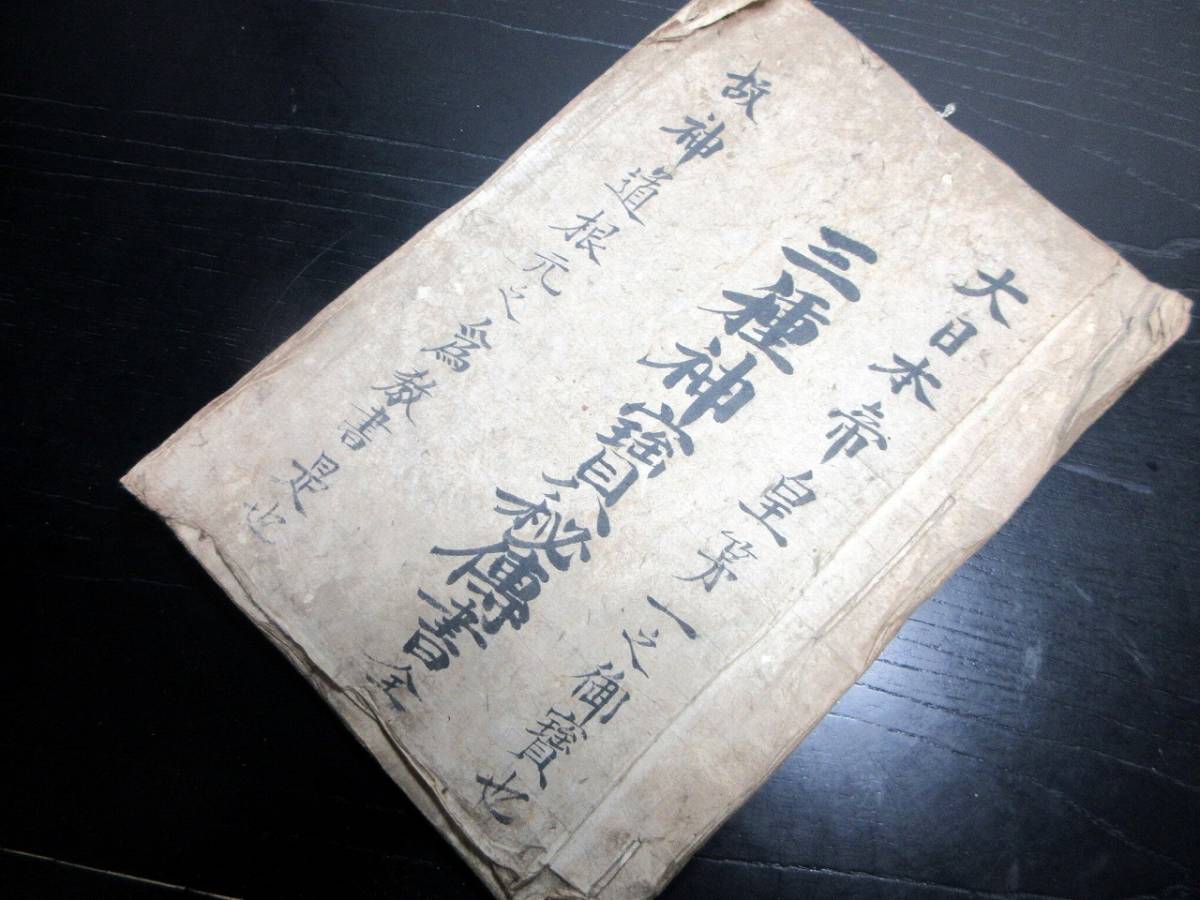 大日本帝皇第一之御寳也
三種神寳秘傳書全
故神道根元之爲教書是也